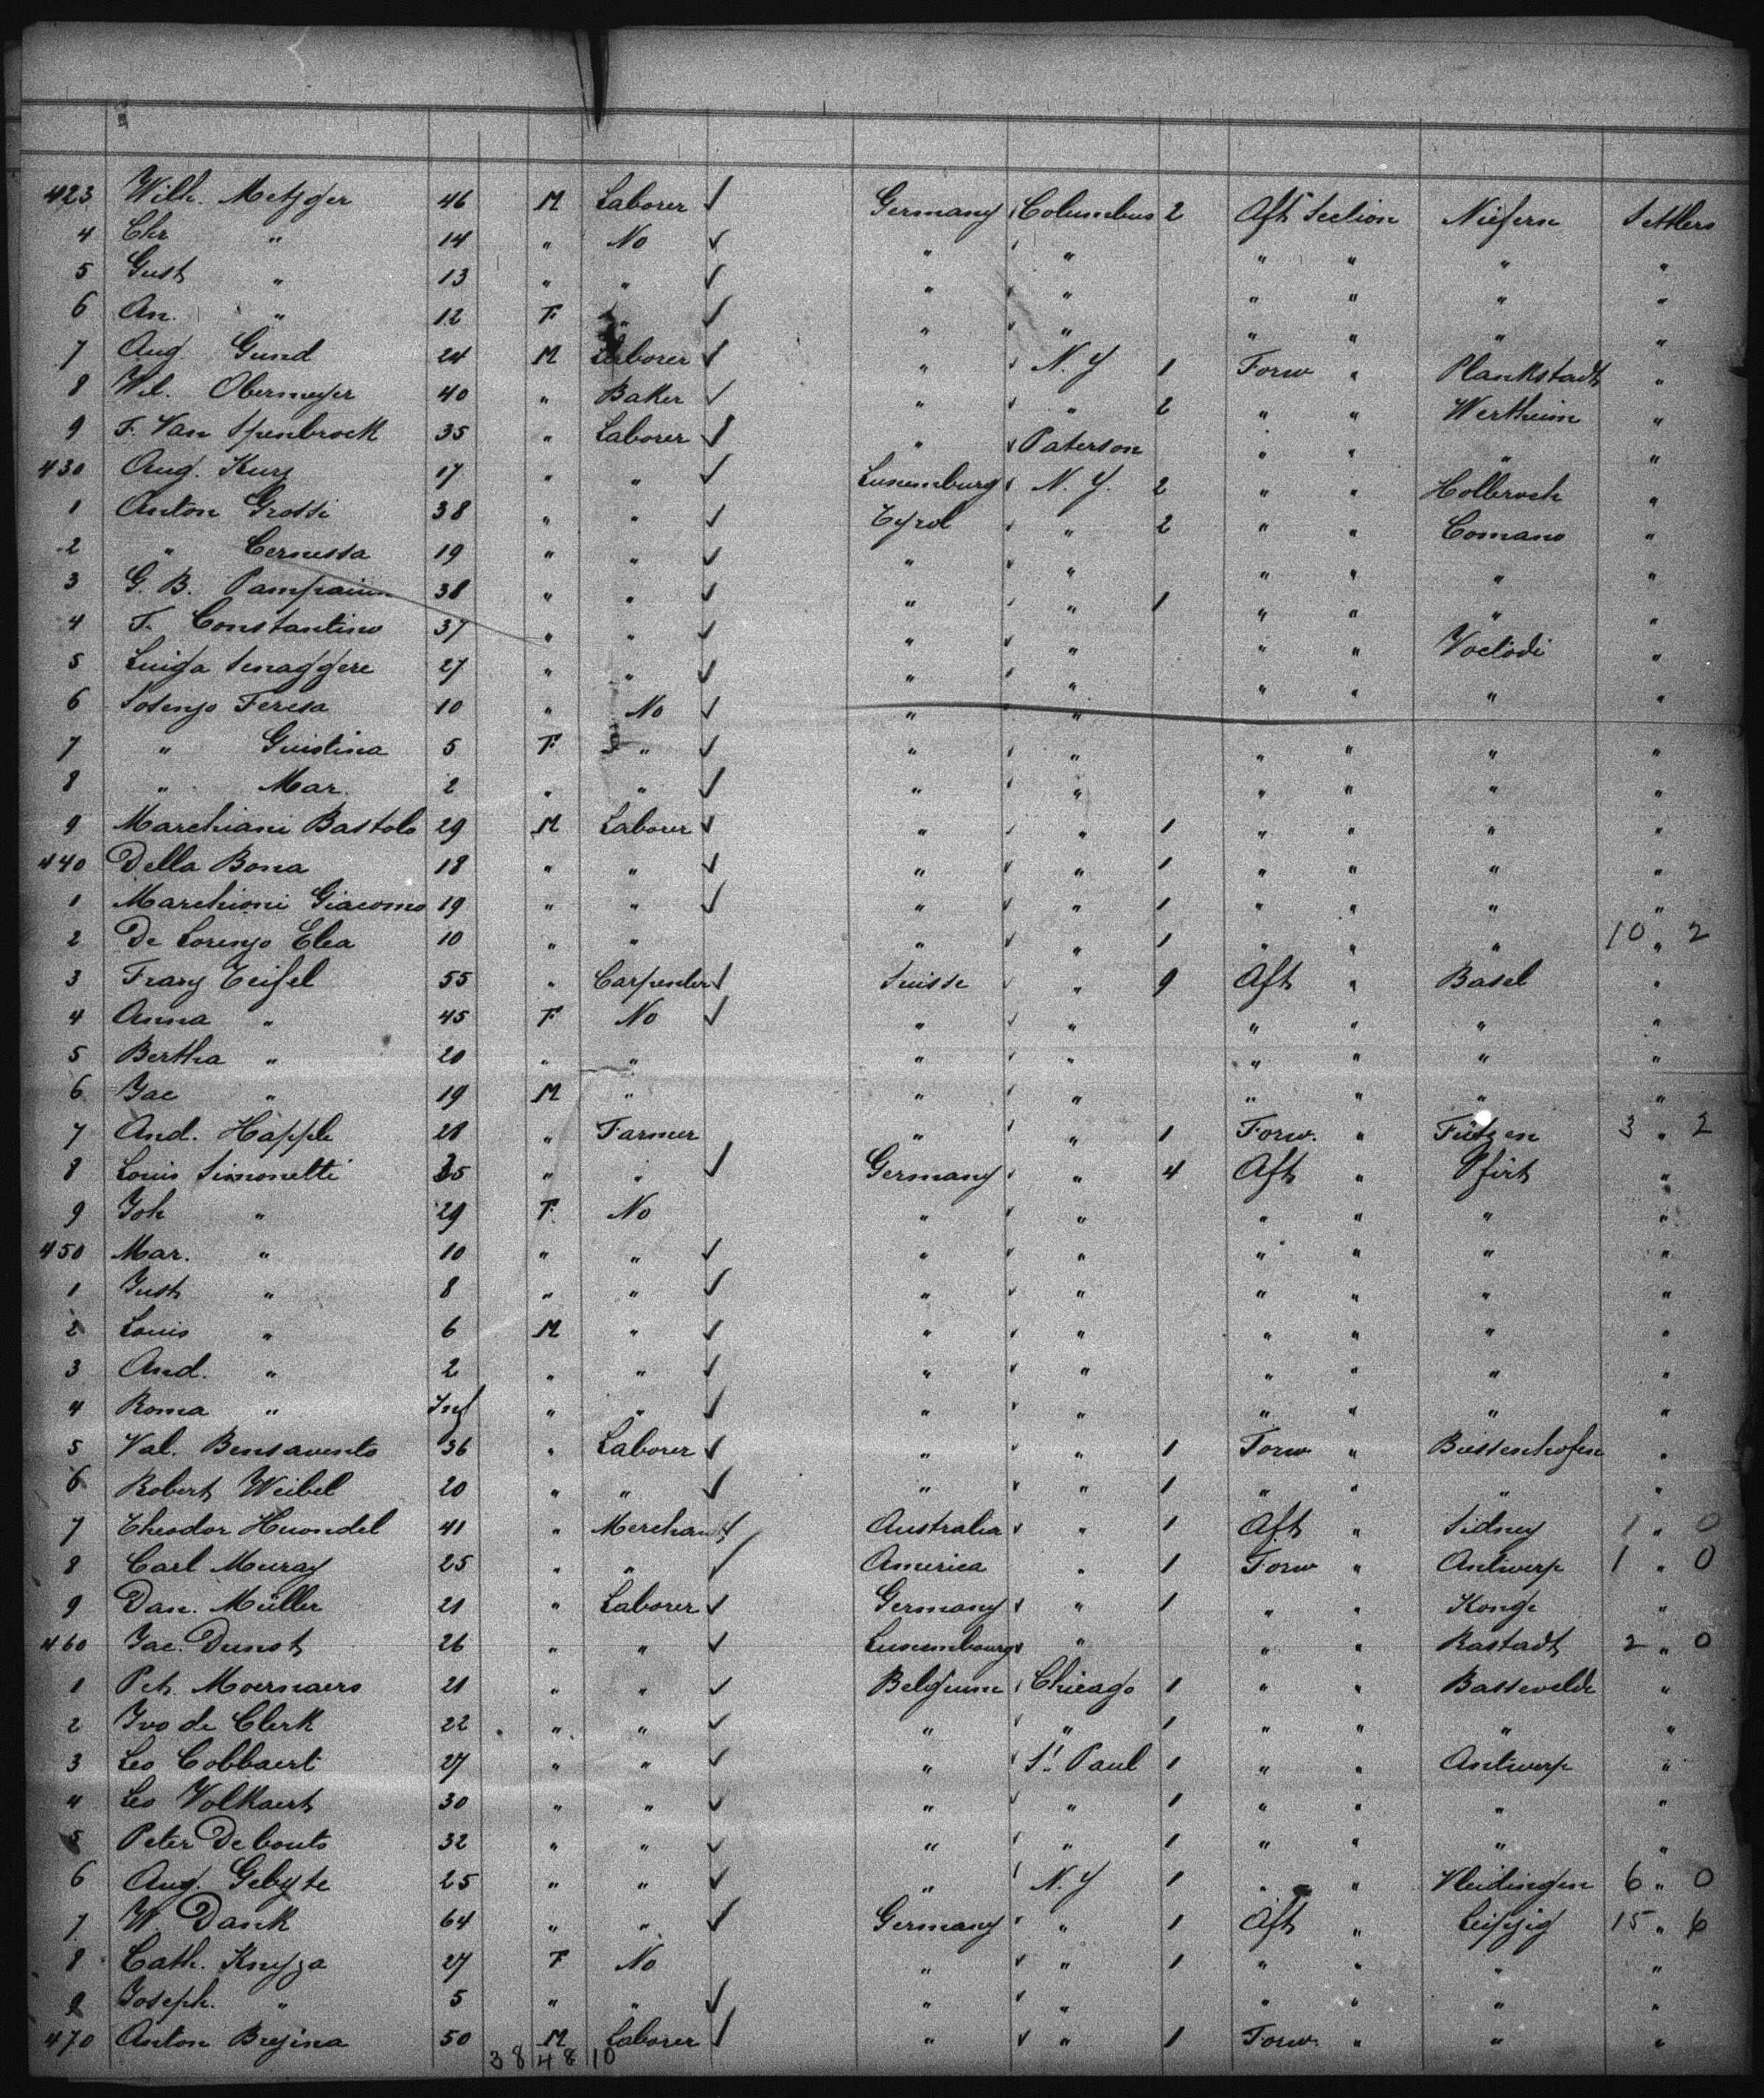 423 Wilh. Metzger 46 M Laborer ✓ Germany Columbus 2 Aft Section Niefern Settlers
4 Chr " 14 " No ✓ " " " " " "
5 Gust " 13 " " ✓ " " " " " "
6 An. " 12 F " ✓ " " " " " "
7 Aug. Gund 24 M Laborer ✓ " N.Y 1 Forw " Plankstadt "
8 Wil. Obermeyer 40 " Baker ✓ " " 2 " " Wertheim "
9 F. Van Spenbrock 35 " Laborer ✓ " Paterson " " " "
430 Aug. Kurz 17 " " ✓ Luxemburg N.Y. 2 " " "
1 Anton Grossi 38 " " ✓ Tyrol " 2 " " Comano "
2 " 19 " " ✓ " " " " " "
3 G. B. 38 " " ✓ " " 1 " " " "
4 F. Constantino 37 " " ✓ " " " " "
5 Luiga 27 " " ✓ " " " " " "
6 Teresa 10 " No ✓ " "
7 " Guistina 5 F " ✓ " " " " " "
8 " Mar. 2 " " ✓ " " " " " "
9 Marchiani Bastolo 29 M Laborer ✓ " " 1 " " " "
440 Della Bona 18 " " ✓ " " 1 " " " "
1 Marchioni Giacomo 19 " " ✓ " " 1 " " " "
2 De Lorenzo Elea 10 " " " " 1 " " " 10 " 2
3 Franz Teifel 55 " Carpenter ✓ Suisse " 9 Aft " Basel "
4 Anna " 45 F No ✓ " " " " " "
5 Bertha " 20 " " " " " " " "
6 Jac " 19 M " " " " " " "
7 And. Happle 28 " Farmer " " 1 Forw. " Fützen 3 " 2
8 Louis Simonetti 35 " " ✓ Germany " 4 Aft " Pfirt "
9 Joh " 29 F No " " " " " "
450 Mar. " 10 " " ✓ " " " " " "
1 Just " 8 " " ✓ " " " " " "
2 Louis " 6 M " ✓ " " " " " "
3 And. " 2 " " ✓ " " " " " "
4 Roma " Inf " " ✓ " " " " " "
5 Val. Bensavento 36 " Laborer ✓ " " 1 Forw " Biessenhofen "
6 Robert Weibel 20 " " ✓ " " 1 " " " "
7 Theodor Huondel 41 " Merchant ✓ Australia " 1 Aft " Sidney 1 " 0
8 Carl Muray 25 " " ✓ America " 1 Forw " Antwerp 1 " 0
9 Dan. Müller 21 " Laborer ✓ Germany " 1 " " Konge "
460 Jac. Dunst 26 " " ✓ Luxembourg " " " Rastadt 2 " 0
1 Pet. Moernaers 21 " " ✓ Belgium Chicago 1 " " Bassevelde "
2 Ivo de Clerk 22 " " ✓ " " 1 " " " "
3 Leo Cobbaert 27 " " ✓ " St. Paul 1 " " Antwerp "
4 Leo Volkaert 30 " " ✓ " " 1 " " " "
5 Peter Debouts 32 " " ✓ " " 1 " " " "
6 Aug. Gebyte 25 " " ✓ " N.Y 1 " " 6 " 0
7 W. Dank 64 " " ✓ Germany " 1 Aft " Leipzig 15 " 6
8 Cath. 27 F No " " 1 " " " "
9 Joseph. " 5 " " ✓ " " " " " "
470 Anton Brejina 50 M Laborer ✓ " " 1 Forw. " " "
38 48 10